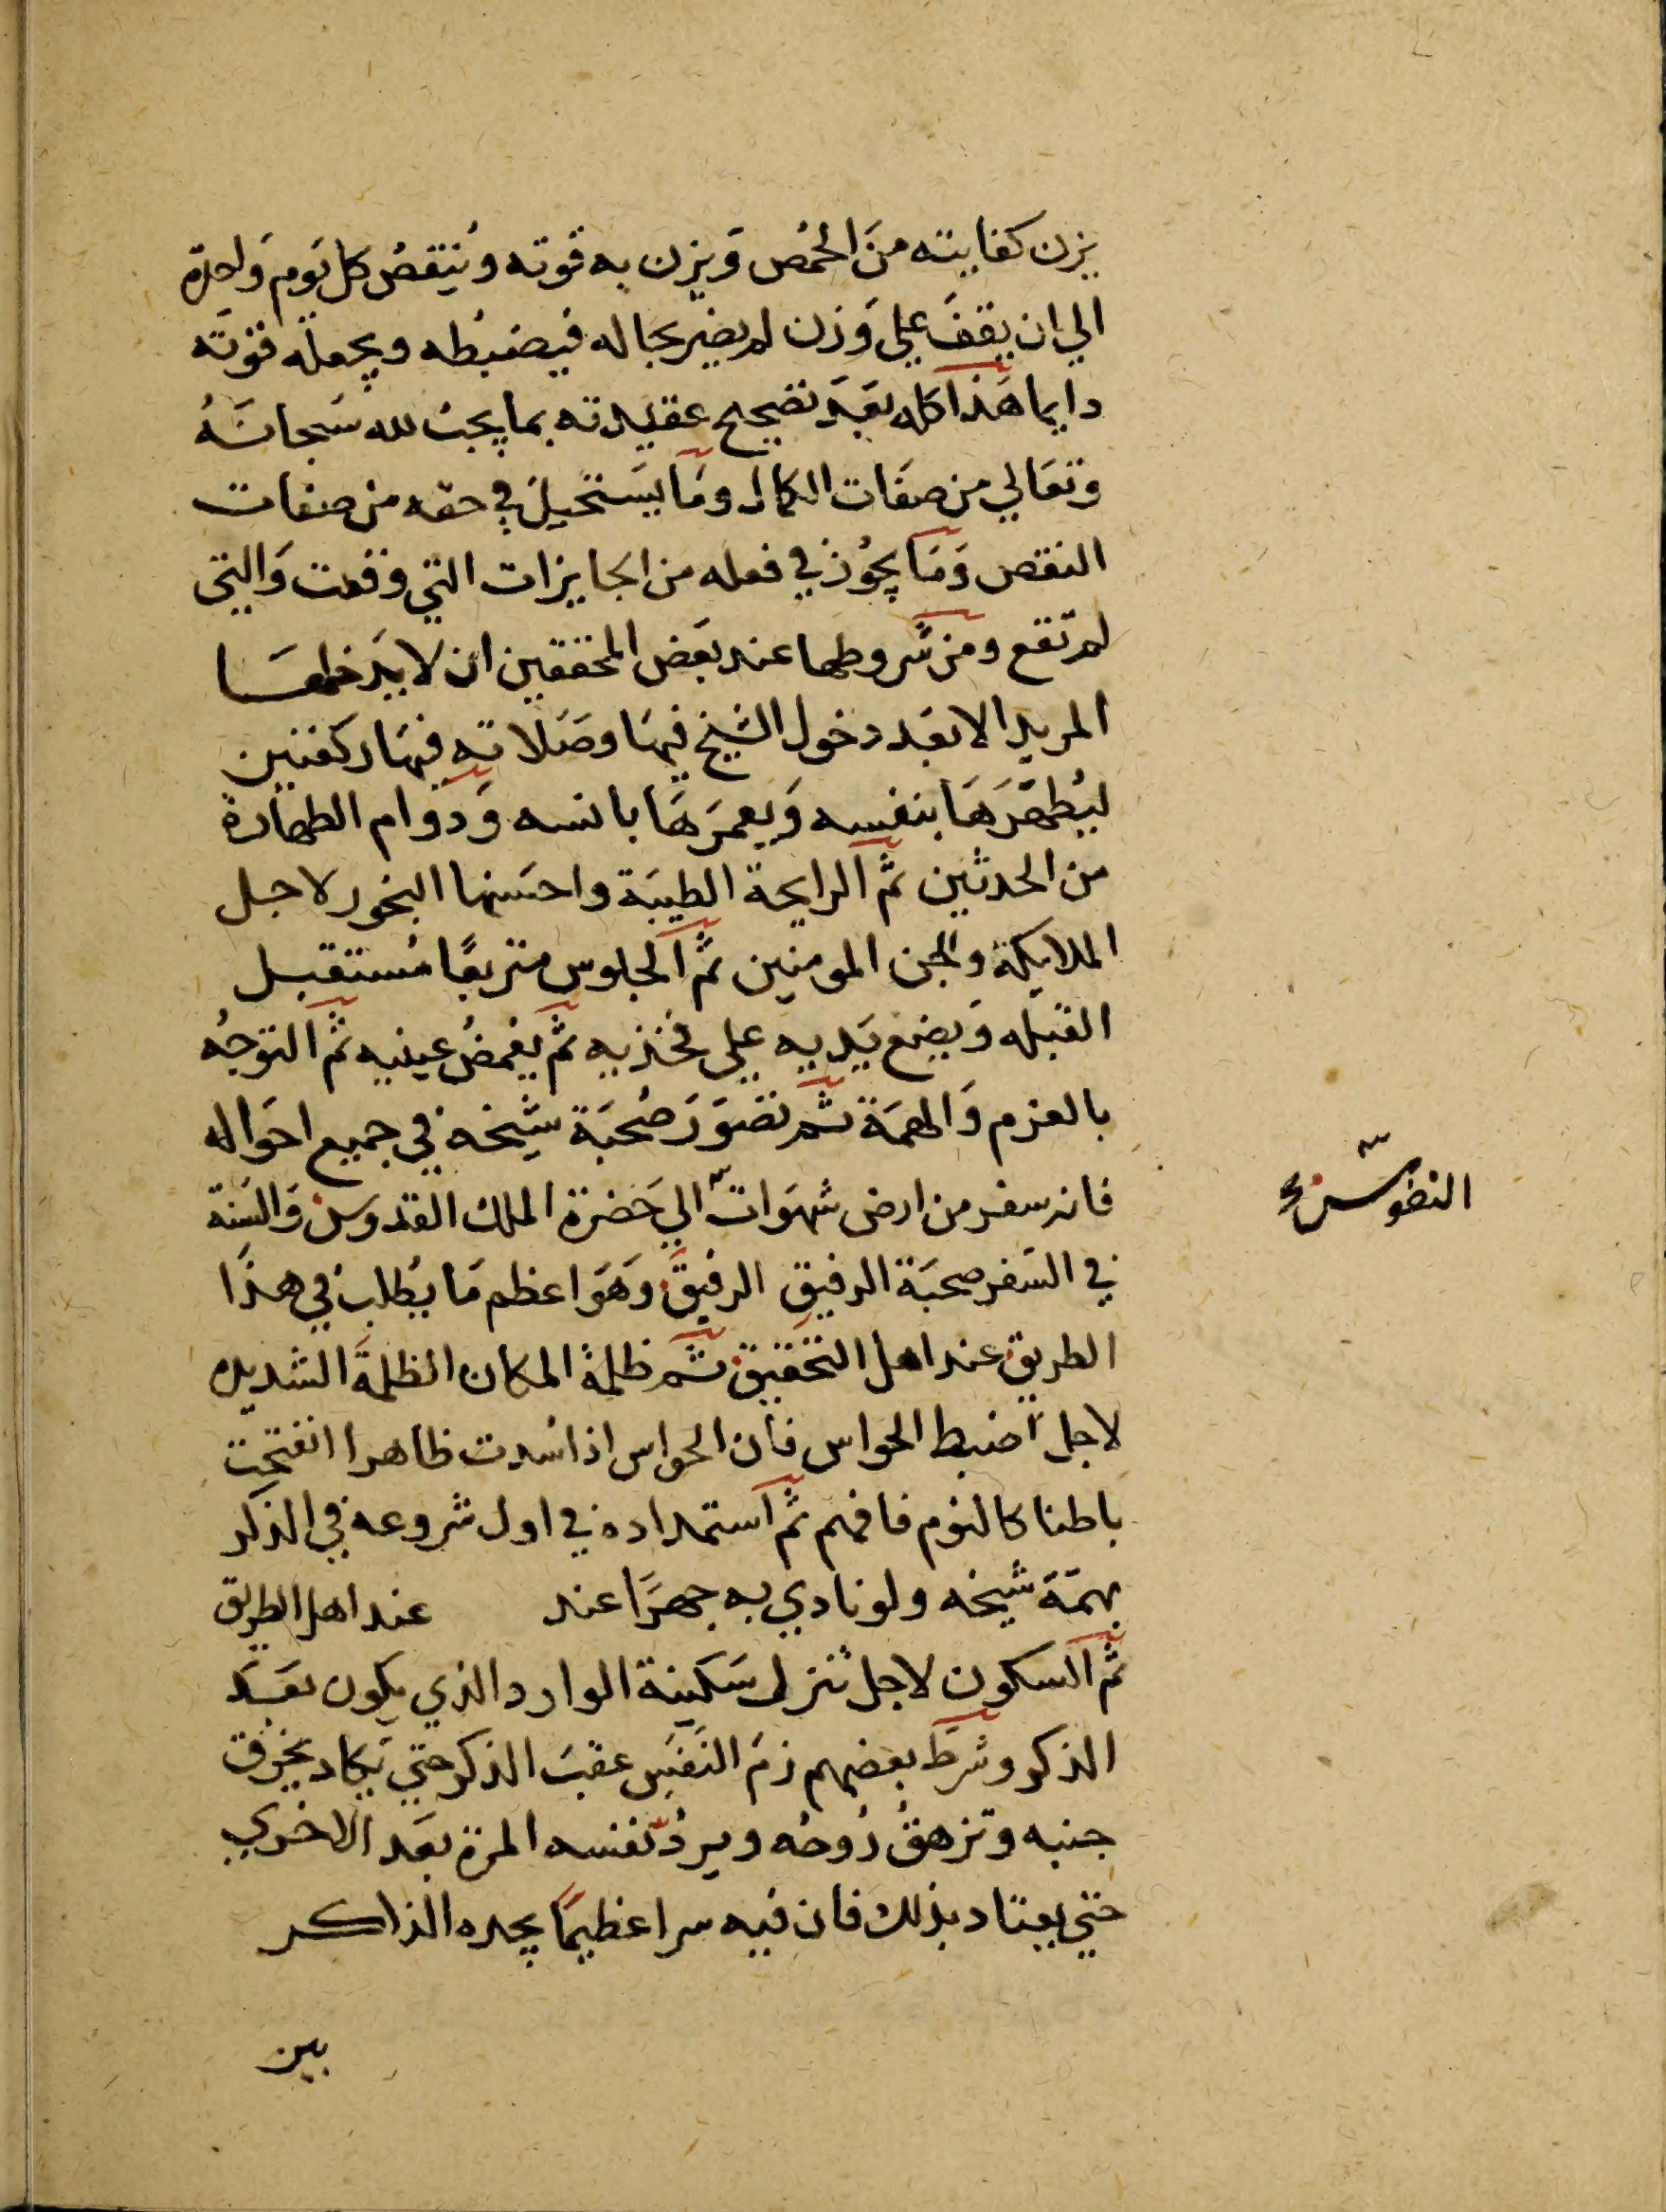 يزن كفايته منَ الحمُص وَيزن به قوته ويُنقصُ كل يَوم وَاحدة
الي ان يقفَ علي وَزن لم يضر بحاله فيضبُطه ويجعله قوته
دايما هَذا كله بَعدَ تصحيح عقيدته بما يجبُ لله سُبحانهُ
وتعَالي من صفَات الكمال ومَا يَستحيل في حقه من صفات
النقص وَمَا يجوُز في فعله من الجايزات التي وقعت وَالتي
لم تقع ومن شروطها عند بعَض المحققين ان لا يَدخلهَا
المريد الا بعَد دخول الشيخ فيهَا وصَلاته فيهَا ركعتين
ليُطهّرَهَا بنفسه وَيعمرَهَا بانسه وَدوام الطهارة
من الحدثين ثم الرايحة الطيبَة واحسَنها البخور لاجل
الملايكة والجن المومنين ثم الجلوس متربعًا مُستقبل
القبله وَيضع يَديه علي فخذيه ثم يغمضُ عينيه ثم التوجُه
بالعزم وَالهمَة ثم تصَوَرَ صُحبَة شيخه في جميع احوَاله
فانه سفر من ارض شهوَات الي حَضرة الملك القدوس وَالسَنة
النفوس صح
في السَفر صحبَة الرفيق الرفيقَ وَهَوَ اعظم مَا يُطلبُ في هذَا
الطريق عند اهل التحقيق ثم ظلمة المكان الظلمَة الشديده
لاجل ضبط الحواس فان الحواس اذا سُدت ظاهرا انفتحت
باطنا كالنوم فافهم ثم استمداده في اول شروعه في الذكر
بهمّة شيخه ولو نادي به جهرًا عند عند اهل الطريق
ثم السكون لاجل تنزل سَكينة الوارد الذي يكون بعَد
الذكر وشرط بعضهم زمَ النفَس عقبَ الذكر حتي يكاد يخرق
جنبه وتزهقُ رُوحُه ويردُ نفسه المرة بعَد الاخري
حتي يعتاد بذلك فان فيه سرا عظيمًا يجده الذاكر
بين